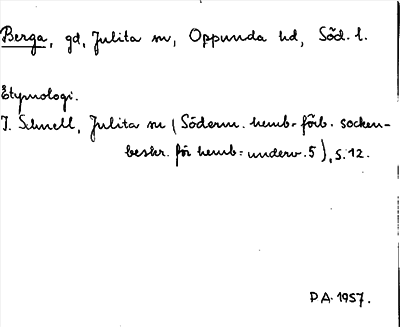 Berga, gd, Julita sn, Oppunda hd, Söd. l.
Etymologi.
I. Schnell, Julita sn (Söderm. hemb.-förb. socken-
beskr. för hemb.-underv. 5), s. 12.
P A. 1957.